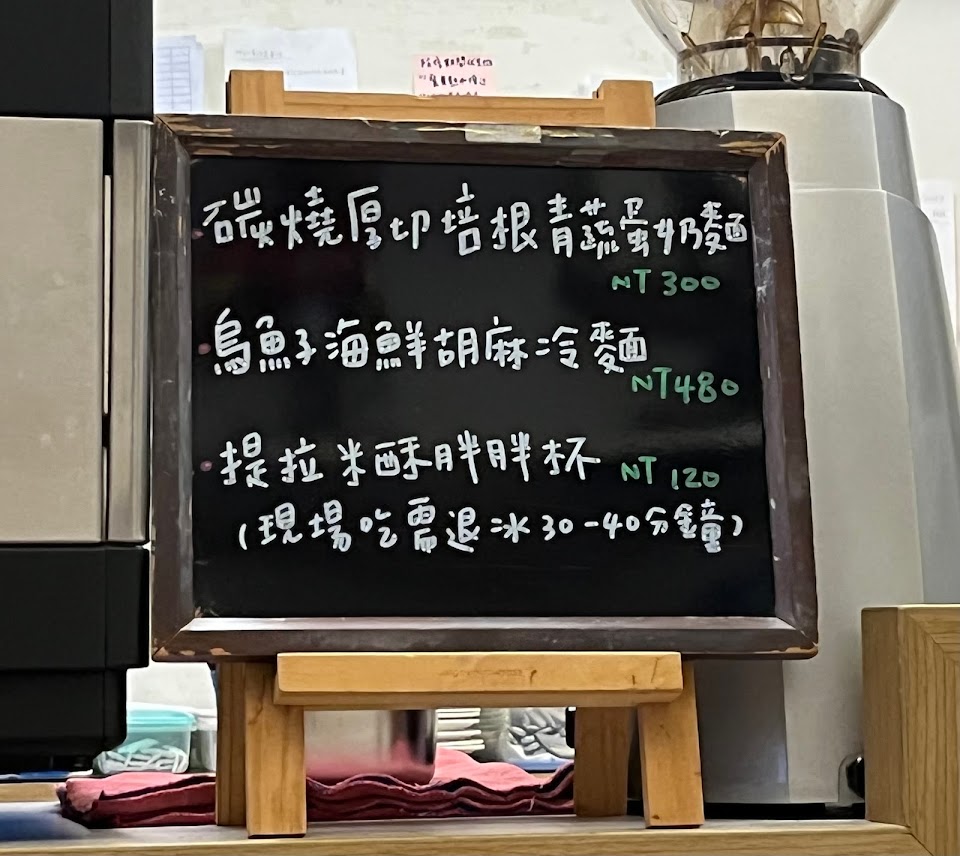 碳燒厚切培根青蔬蛋奶麵
NT 300
烏魚子海鮮胡麻冷麵
NT480
提拉米酥胖胖杯 NT 120
(現場吃需退冰30-40分鐘)